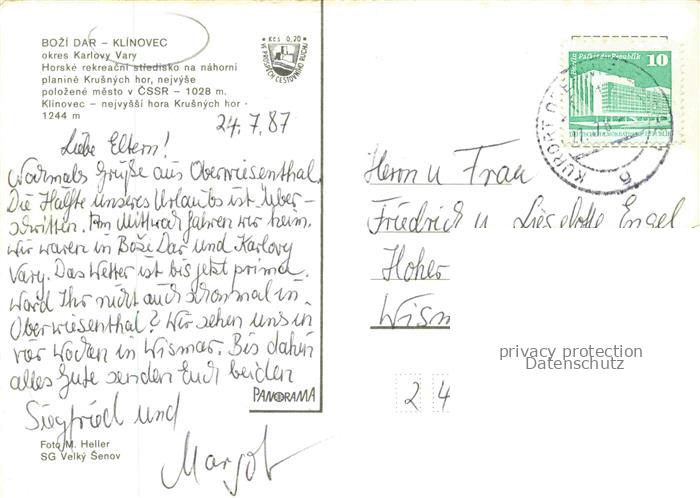 BOŽÍ DAR – KLÍNOVEC
okres Karlovy Vary
Horské rekreační středisko na náhorní
planině Krušných hor, nejvýše
položené město v ČSSR – 1028 m.
Klínovec – nejvyšší hora Krušných hor -
1244 m
Kčs 0,20
VE PROSPĚCH CESTOVNÍHO RUCHU
24.7.87
Liebe Eltern!
Nochmals Grüße aus Oberwiesenthal.
Die Hälfte unseres Urlaubs ist über-
schritten. Am Mittwoch fahren wir heim.
Wir waren in Boži Dar und Karlovy
Vary. Das Wetter ist bis jetzt prima.
Ward Ihr nicht auch schonmal in
Oberwiesenthal? Wir sehen uns in
vier Wochen in Wismar. Bis dahin
alles Gute senden Euch beiden
Siegfried und
Margot
PANORAMA
Foto M. Heller
SG Velký Šenov
10
Palast der Republik
DEUTSCHE DEMOKRATISCHE REPUBLIK
KURORT
Herrn u Frau
Friedrich u Lieselotte Engel
Hoher
Wism
2 4
privacy protection
Datenschutz